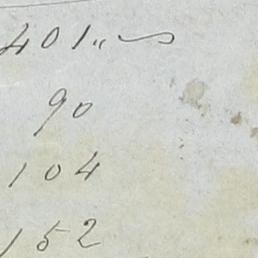 401 " ~
90
104
152